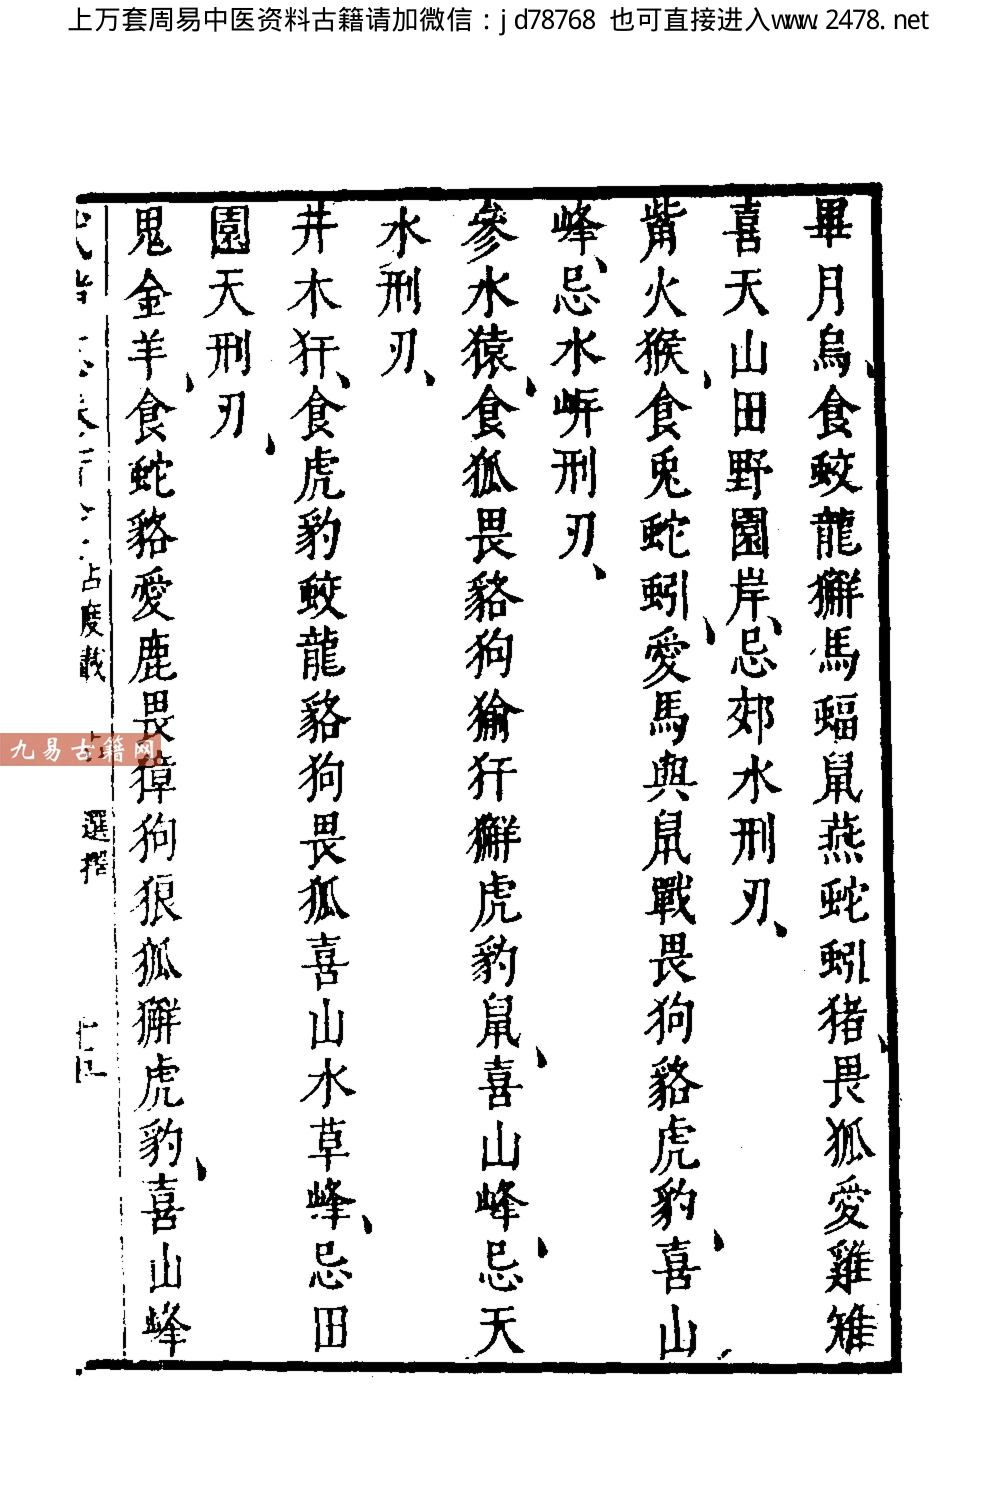 上万套周易中医资料古籍请加微信：jd78768 也可直接进入www.2478.net
畢月烏、食蛟龍獬馬蝠鼠燕蛇蚓猪、畏狐愛雞雉
喜天山田野園岸、忌郊水刑刃、
觜火猴、食兎蛇蚓、愛馬與鼠戰畏狗貉虎豹、喜山
峰、忌水岍刑刃、
參水猿、食狐畏貉狗㺄犴獬虎豹鼠、喜山峰、忌天
水刑刃、
井木犴、食虎豹蛟龍貉狗畏狐喜山水草峰、忌田
園天刑刃、
鬼金羊、食蛇貉愛鹿畏獐狗狼狐獬虎豹、喜山峰
占度載
選擇
九易古籍网